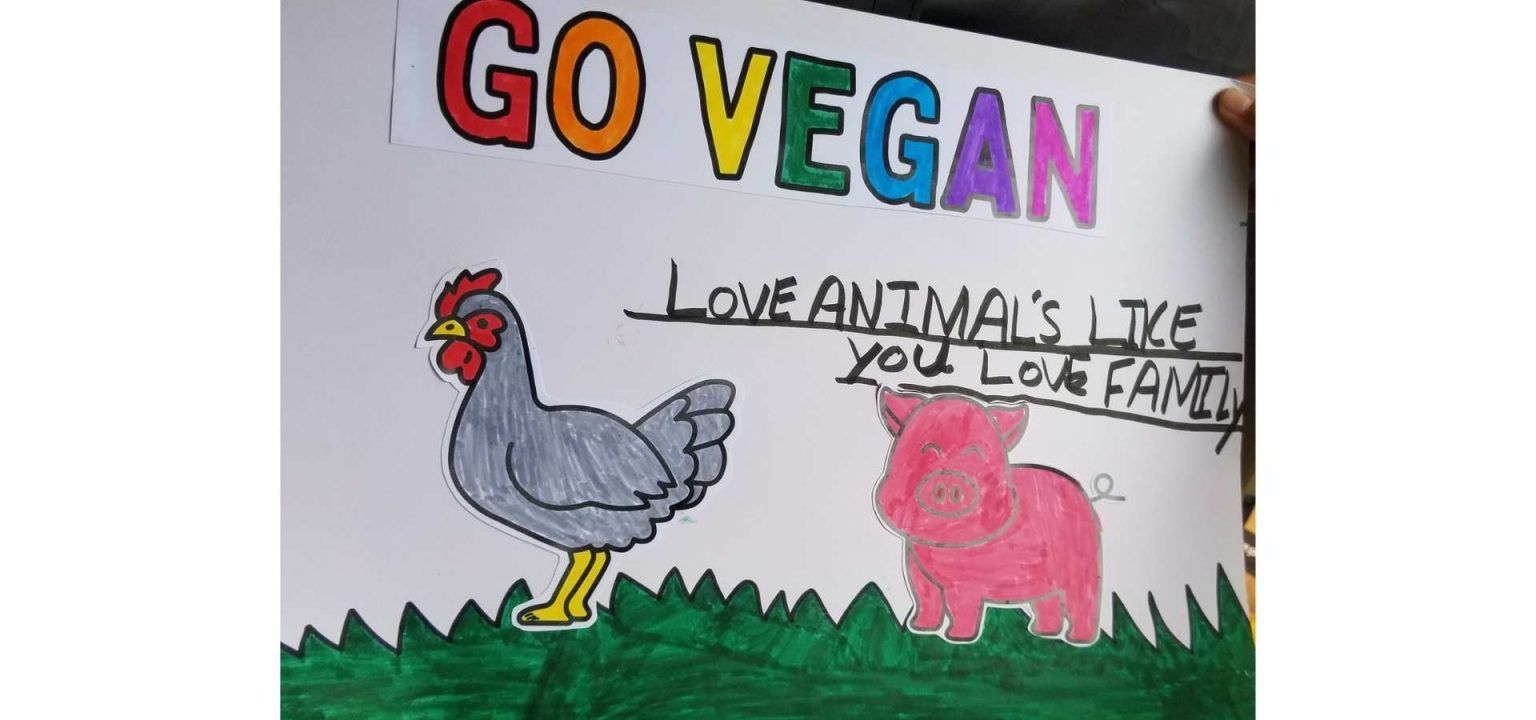 GO VEGAN
LOVE ANIMAL'S LIKE
YOU LOVE FAMILY